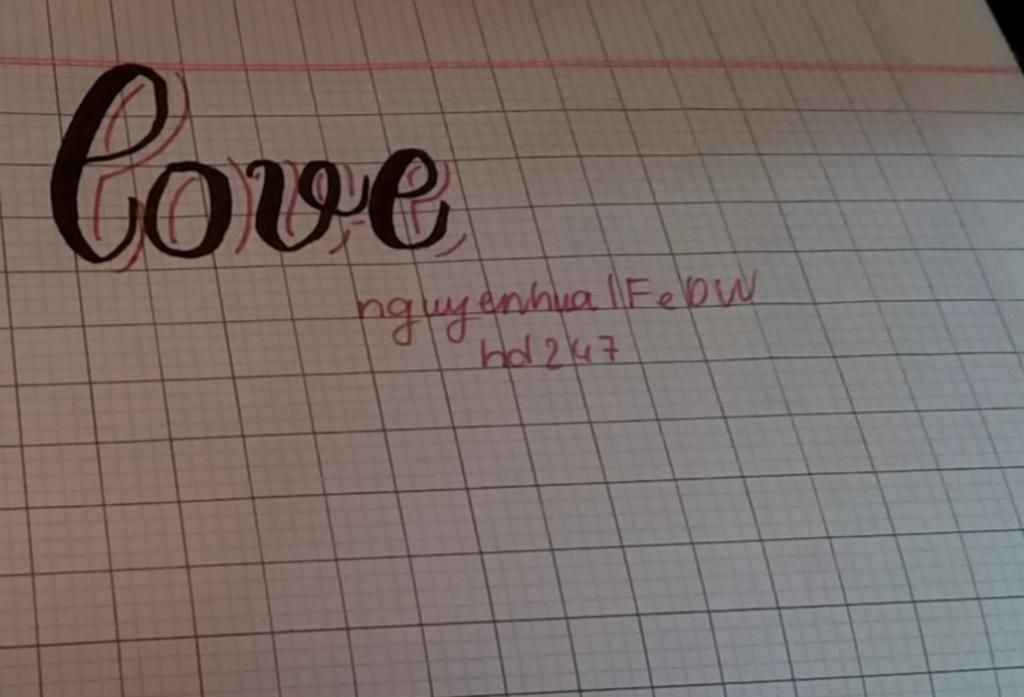 love
nguyenhua|FeDW
hd247